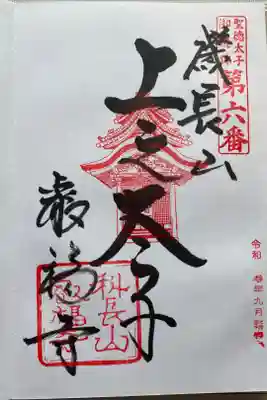 聖徳太子
第六番
磯長山
上之太子
叡福寺
科長山
叡福寺
令和
年九月